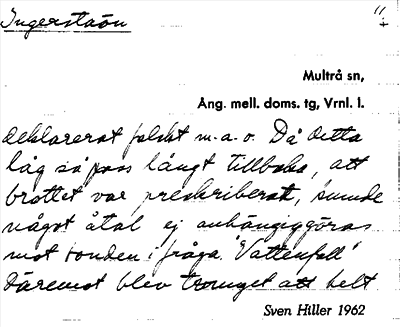 Ingerstaön
11
Multrå sn,
Ång. mell. doms. tg, Vrnl. l.
deklarerat falskt m.a.o. Då detta
låg så pass långt tillbaka, att
brottet var preskriberat, kunde
något åtal ej anhängiggöras
mot bonden i fråga. "Vattenfall"
däremot blev tvunget att helt
Sven Hiller 1962